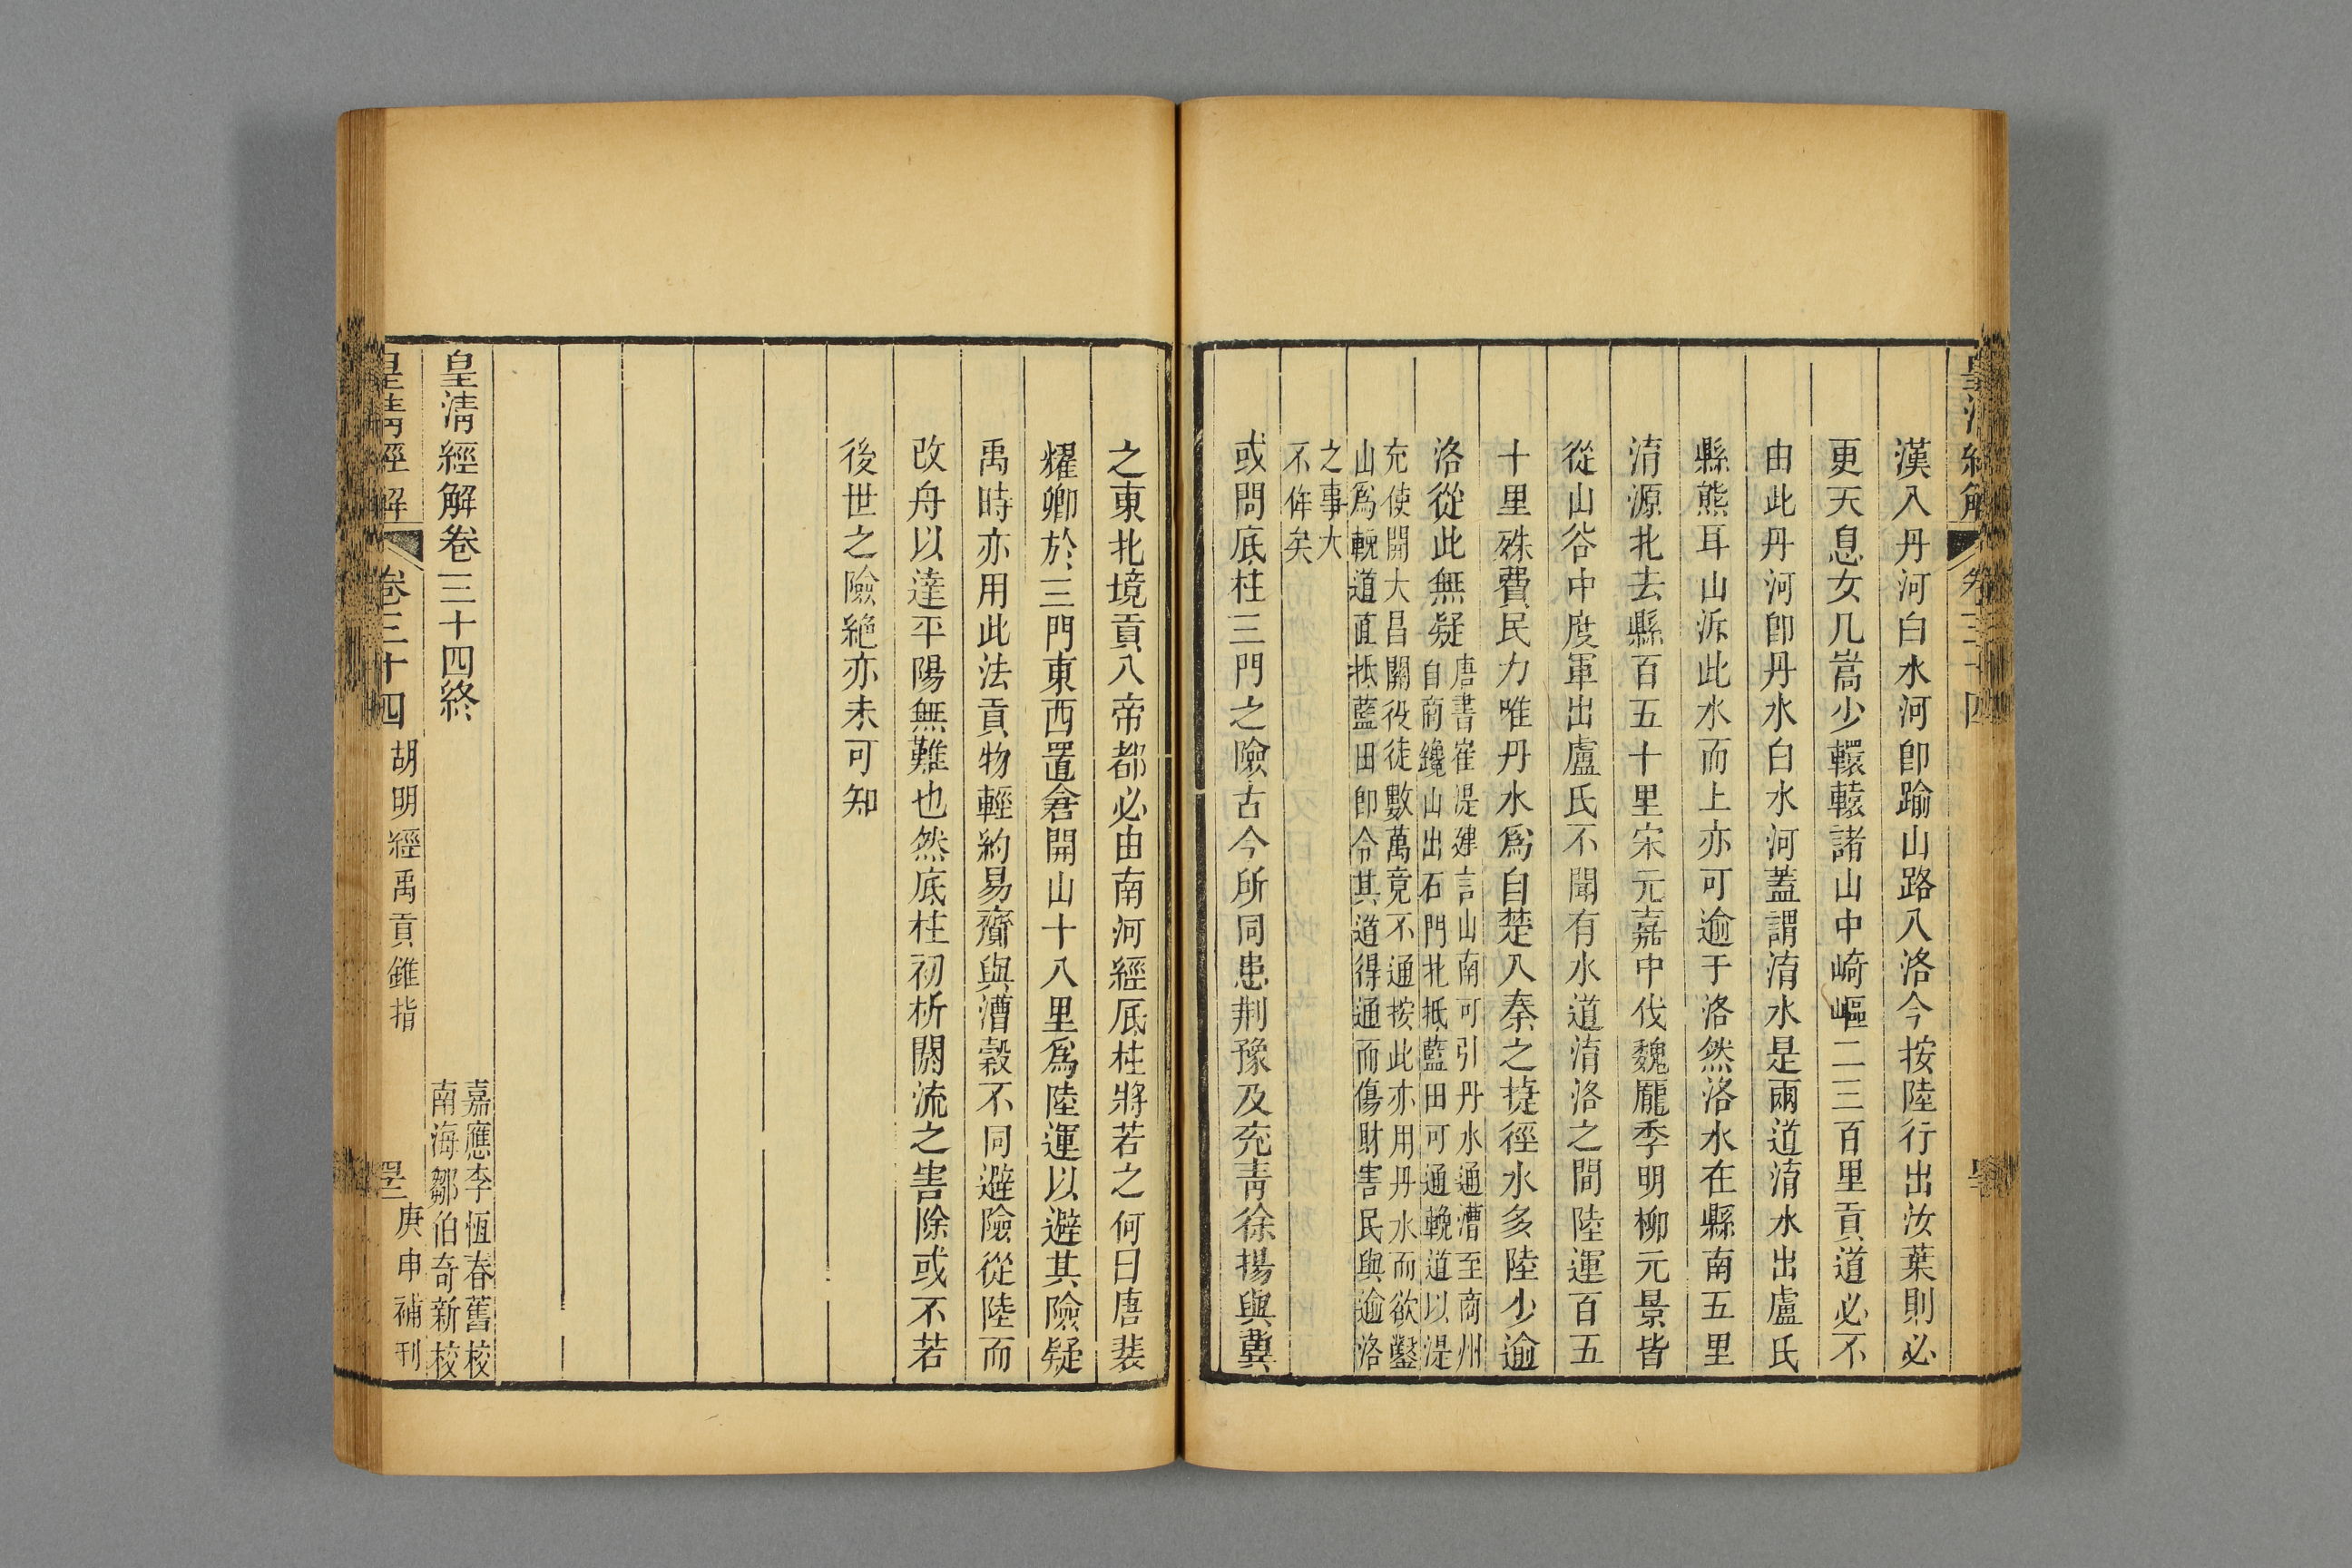 漢入丹河白水河卽踰山路入洛今按陸行出汝葉則必
更天息女几嵩少轘轅諸山中崎嶇二三百里貢道必不
由此丹河卽丹水白水河蓋謂淯水是兩道淯水出盧氏
縣熊耳山泝此水而上亦可逾于洛然洛水在縣南五里
淯源北去縣百五十里宋元嘉中伐魏龐季明柳元景皆
從山谷中度軍出盧氏不聞有水道淯洛之間陸運百五
十里殊費民力唯丹水爲自楚入秦之捷徑水多陸少逾
洛從此無疑
唐書崔湜建言山南可引丹水通漕至商州
自商鑱山出石門北抵藍田可通輓道以湜
充使開大昌關役徒數萬竟不通按此亦用丹水而欲鑿
山爲輓道直抵藍田卽令其道得通而傷財害民與逾洛
之事大
不侔矣
或問底柱三門之險古今所同患荆豫及兖靑徐揚與冀
之東北境貢入帝都必由南河經厎柱將若之何曰唐裴
耀卿於三門東西置倉開山十八里爲陸運以避其險疑
禹時亦用此法貢物輕約易齎與漕穀不同避險從陸而
改舟以達平陽無難也然底柱初析閼流之害除或不若
後世之險絶亦未可知
皇淸經解卷三十四終
嘉應李恆春舊校
南海鄒伯奇新校
皇淸經解
卷三十四
胡明經禹貢錐指
庚申補刊